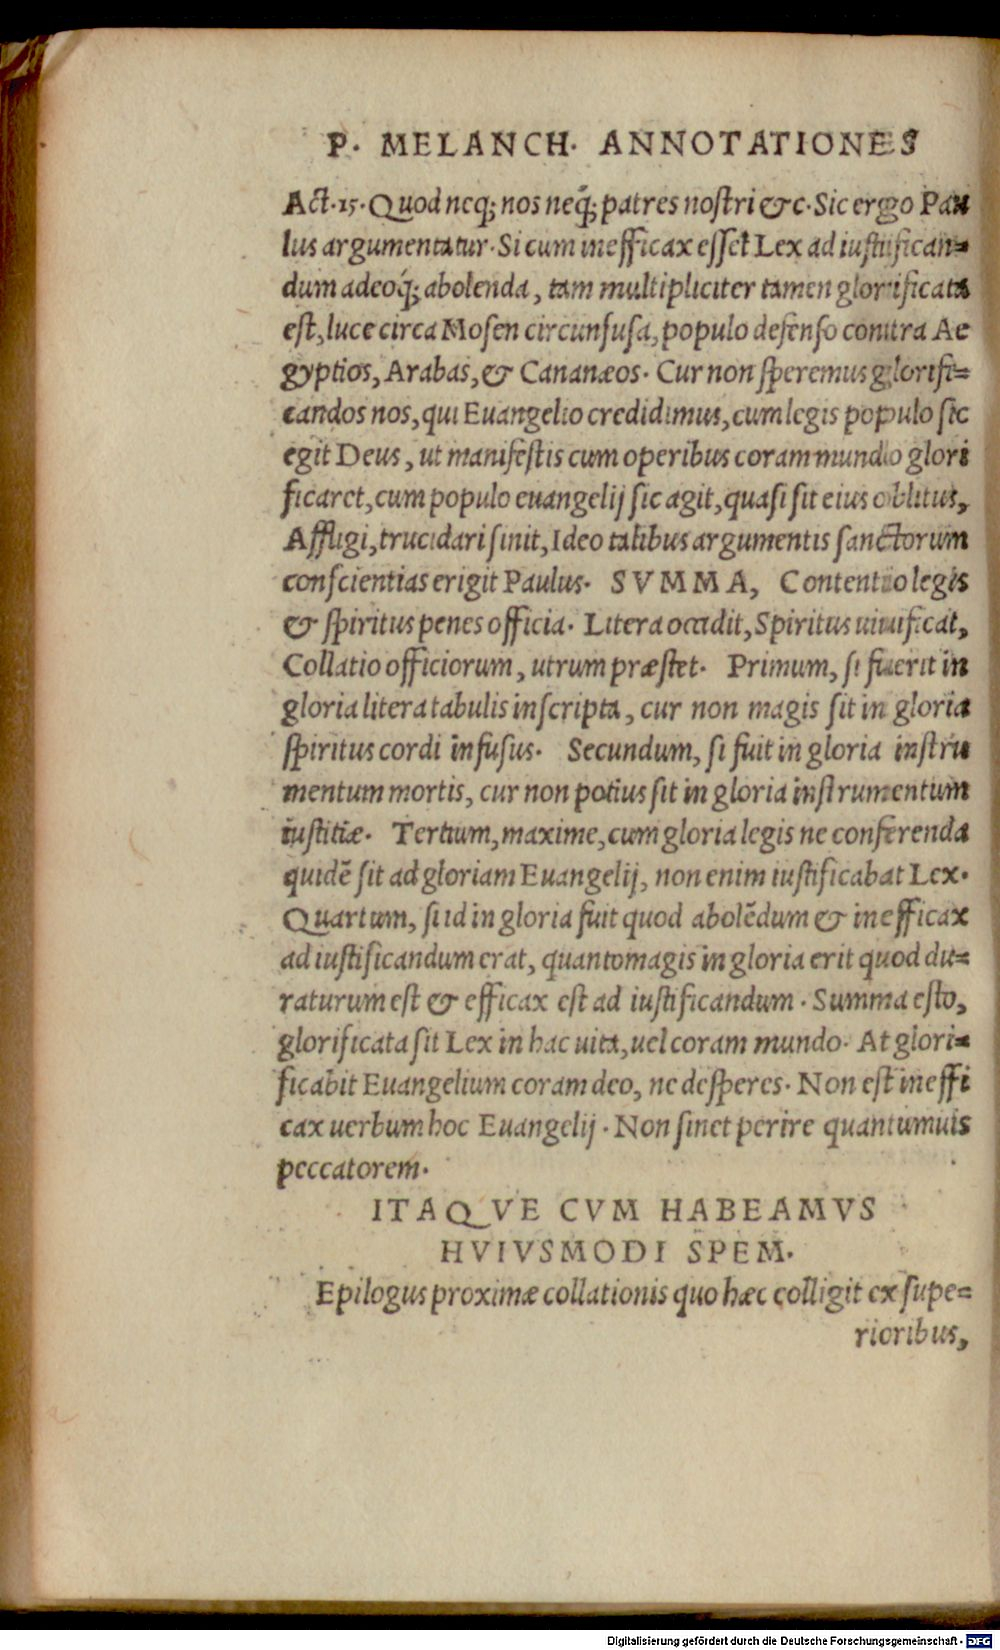 P. MELANCH. ANNOTATIONES
Act.15. Quod neq; nos neq́; patres nostri &c. Sic ergo Pau
lus argumentatur. Si cum inefficax esset Lex ad iustifican=
dum adeoq́; abolenda, tam multipliciter tamen glorificata
est, luce circa Mosen circunfusa, populo defenso contra Ae
gyptios, Arabas, & Cananæos. Cur non speremus glorifi=
candos nos, qui Euangelio credidimus, cum legis populo sic
egit Deus, ut manifestis cum operibus coram mundo glori
ficaret, cum populo euangelij sic agit, quasi sit eius oblitus,
Affligi, trucidari sinit, Ideo talibus argumentis sanctorum
conscientias erigit Paulus. SVMMA, Contentio legis
& spiritus penes officia. Litera occidit, Spiritus uiuificat,
Collatio officiorum, utrum præstet. Primum, si fuerit in
gloria litera tabulis inscripta, cur non magis sit in gloria
spiritus cordi infusus. Secundum, si fuit in gloria instru
mentum mortis, cur non potius sit in gloria instrumentum
iustitiæ. Tertium, maxime, cum gloria legis ne conferenda
quidẽ sit ad gloriam Euangelij, non enim iustificabat Lex.
Quartum, si id in gloria fuit quod abolẽdum & inefficax
ad iustificandum erat, quanto magis in gloria erit quod du=
raturum est & efficax est ad iustificandum. Summa esto,
glorificata sit Lex in hac uita, uel coram mundo. At glori=
ficabit Euangelium coram deo, ne desperes. Non est ineffi
cax uerbum hoc Euangelij. Non sinet perire quantumuis
peccatorem.
ITAQVE CVM HABEAMVS
HVIVSMODI SPEM.
Epilogus proximæ collationis quo hæc colligit ex supe=
rioribus,
Digitalisierung gefördert durch die Deutsche Forschungsgemeinschaft - DFG